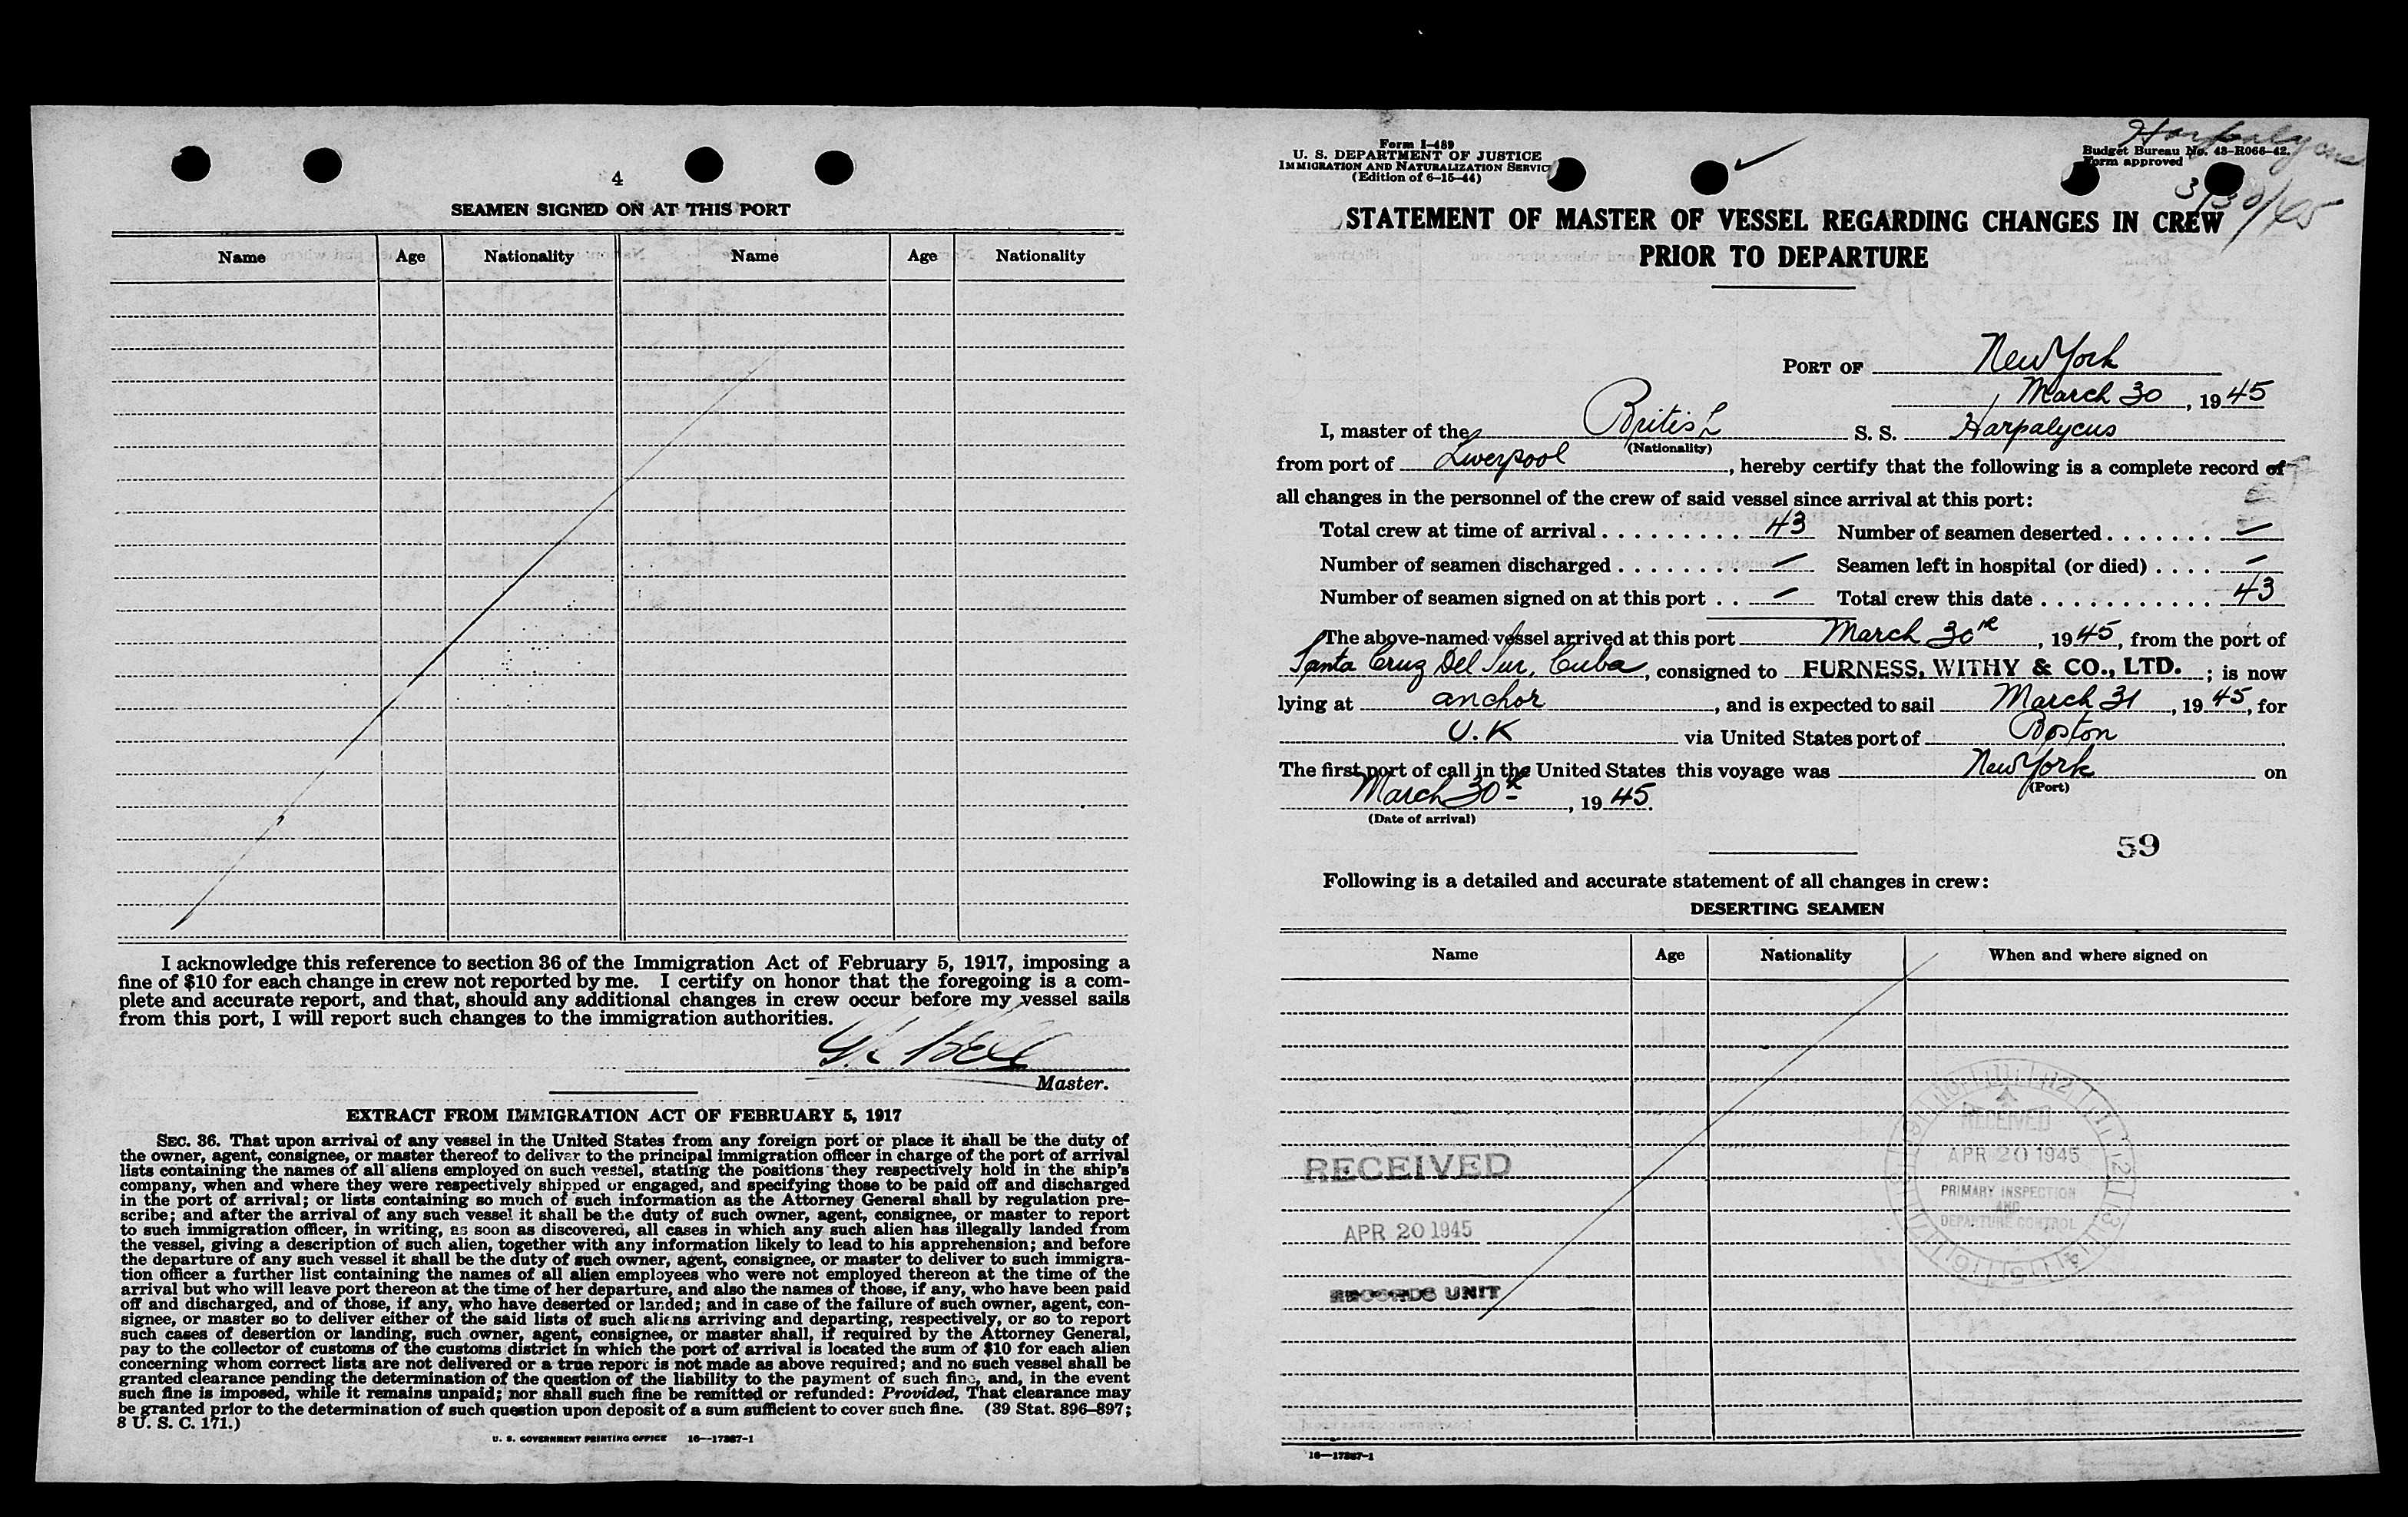 4
SEAMEN SIGNED ON AT THIS PORT
Name Age Nationality Name Age Nationality
I acknowledge this reference to section 36 of the Immigration Act of February 5, 1917, imposing a
fine of $10 for each change in crew not reported by me. I certify on honor that the foregoing is a com-
plete and accurate report, and that, should any additional changes in crew occur before my vessel sails
from this port, I will report such changes to the immigration authorities.
Bell
Master.
EXTRACT FROM IMMIGRATION ACT OF FEBRUARY 5, 1917
SEC. 36. That upon arrival of any vessel in the United States from any foreign port or place it shall be the duty of
the owner, agent, consignee, or master thereof to deliver to the principal immigration officer in charge of the port of arrival
lists containing the names of all aliens employed on such vessel, stating the positions they respectively hold in the ship's
company, when and where they were respectively shipped or engaged, and specifying those to be paid off and discharged
in the port of arrival; or lists containing so much of such information as the Attorney General shall by regulation pre-
scribe; and after the arrival of any such vessel it shall be the duty of such owner, agent, consignee, or master to report
to such immigration officer, in writing, as soon as discovered, all cases in which any such alien has illegally landed from
the vessel, giving a description of such alien, together with any information likely to lead to his apprehension; and before
the departure of any such vessel it shall be the duty of such owner, agent, consignee, or master to deliver to such immigra-
tion officer a further list containing the names of all alien employees who were not employed thereon at the time of the
arrival but who will leave port thereon at the time of her departure, and also the names of those, if any, who have been paid
off and discharged, and of those, if any, who have deserted or landed; and in case of the failure of such owner, agent, con-
signee, or master so to deliver either of the said lists of such aliens arriving and departing, respectively, or so to report
such cases of desertion or landing, such owner, agent, consignee, or master shall, if required by the Attorney General,
pay to the collector of customs of the customs district in which the port of arrival is located the sum of $10 for each alien
concerning whom correct lists are not delivered or a true report is not made as above required; and no such vessel shall be
granted clearance pending the determination of the question of the liability to the payment of such fine, and, in the event
such fine is imposed, while it remains unpaid; nor shall such fine be remitted or refunded: Provided, That clearance may
be granted prior to the determination of such question upon deposit of a sum sufficient to cover such fine. (39 Stat. 896–897;
8 U. S. C. 171.)
U. S. GOVERNMENT PRINTING OFFICE 16—17387-1
Form I-489
U. S. DEPARTMENT OF JUSTICE
IMMIGRATION AND NATURALIZATION SERVIC
(Edition of 6-15-44)
Harpalycus
Budget Bureau No. 43-R066-42.
Form approved
3/30/45
STATEMENT OF MASTER OF VESSEL REGARDING CHANGES IN CREW
PRIOR TO DEPARTURE
PORT OF New York
March 30, 1945
I, master of the British S. S. Harpalycus
(Nationality)
from port of Liverpool, hereby certify that the following is a complete record of
all changes in the personnel of the crew of said vessel since arrival at this port:
Total crew at time of arrival......... 43 Number of seamen deserted....... –
Number of seamen discharged........ – Seamen left in hospital (or died).... –
Number of seamen signed on at this port.. – Total crew this date........... 43
The above-named vessel arrived at this port March 30th, 1945, from the port of
Santa Cruz Del Sur, Cuba, consigned to FURNESS, WITHY & CO., LTD.; is now
lying at anchor, and is expected to sail March 31, 1945, for
U.K via United States port of Boston.
The first port of call in the United States this voyage was New York on
(Port)
March 30th, 1945.
(Date of arrival)
59
Following is a detailed and accurate statement of all changes in crew:
DESERTING SEAMEN
Name Age Nationality When and where signed on
RECEIVED
APR 20 1945
RECORDS UNIT
RECEIVED
APR 20 1945
PRIMARY INSPECTION
AND
DEPARTURE CONTROL
16—17387-1